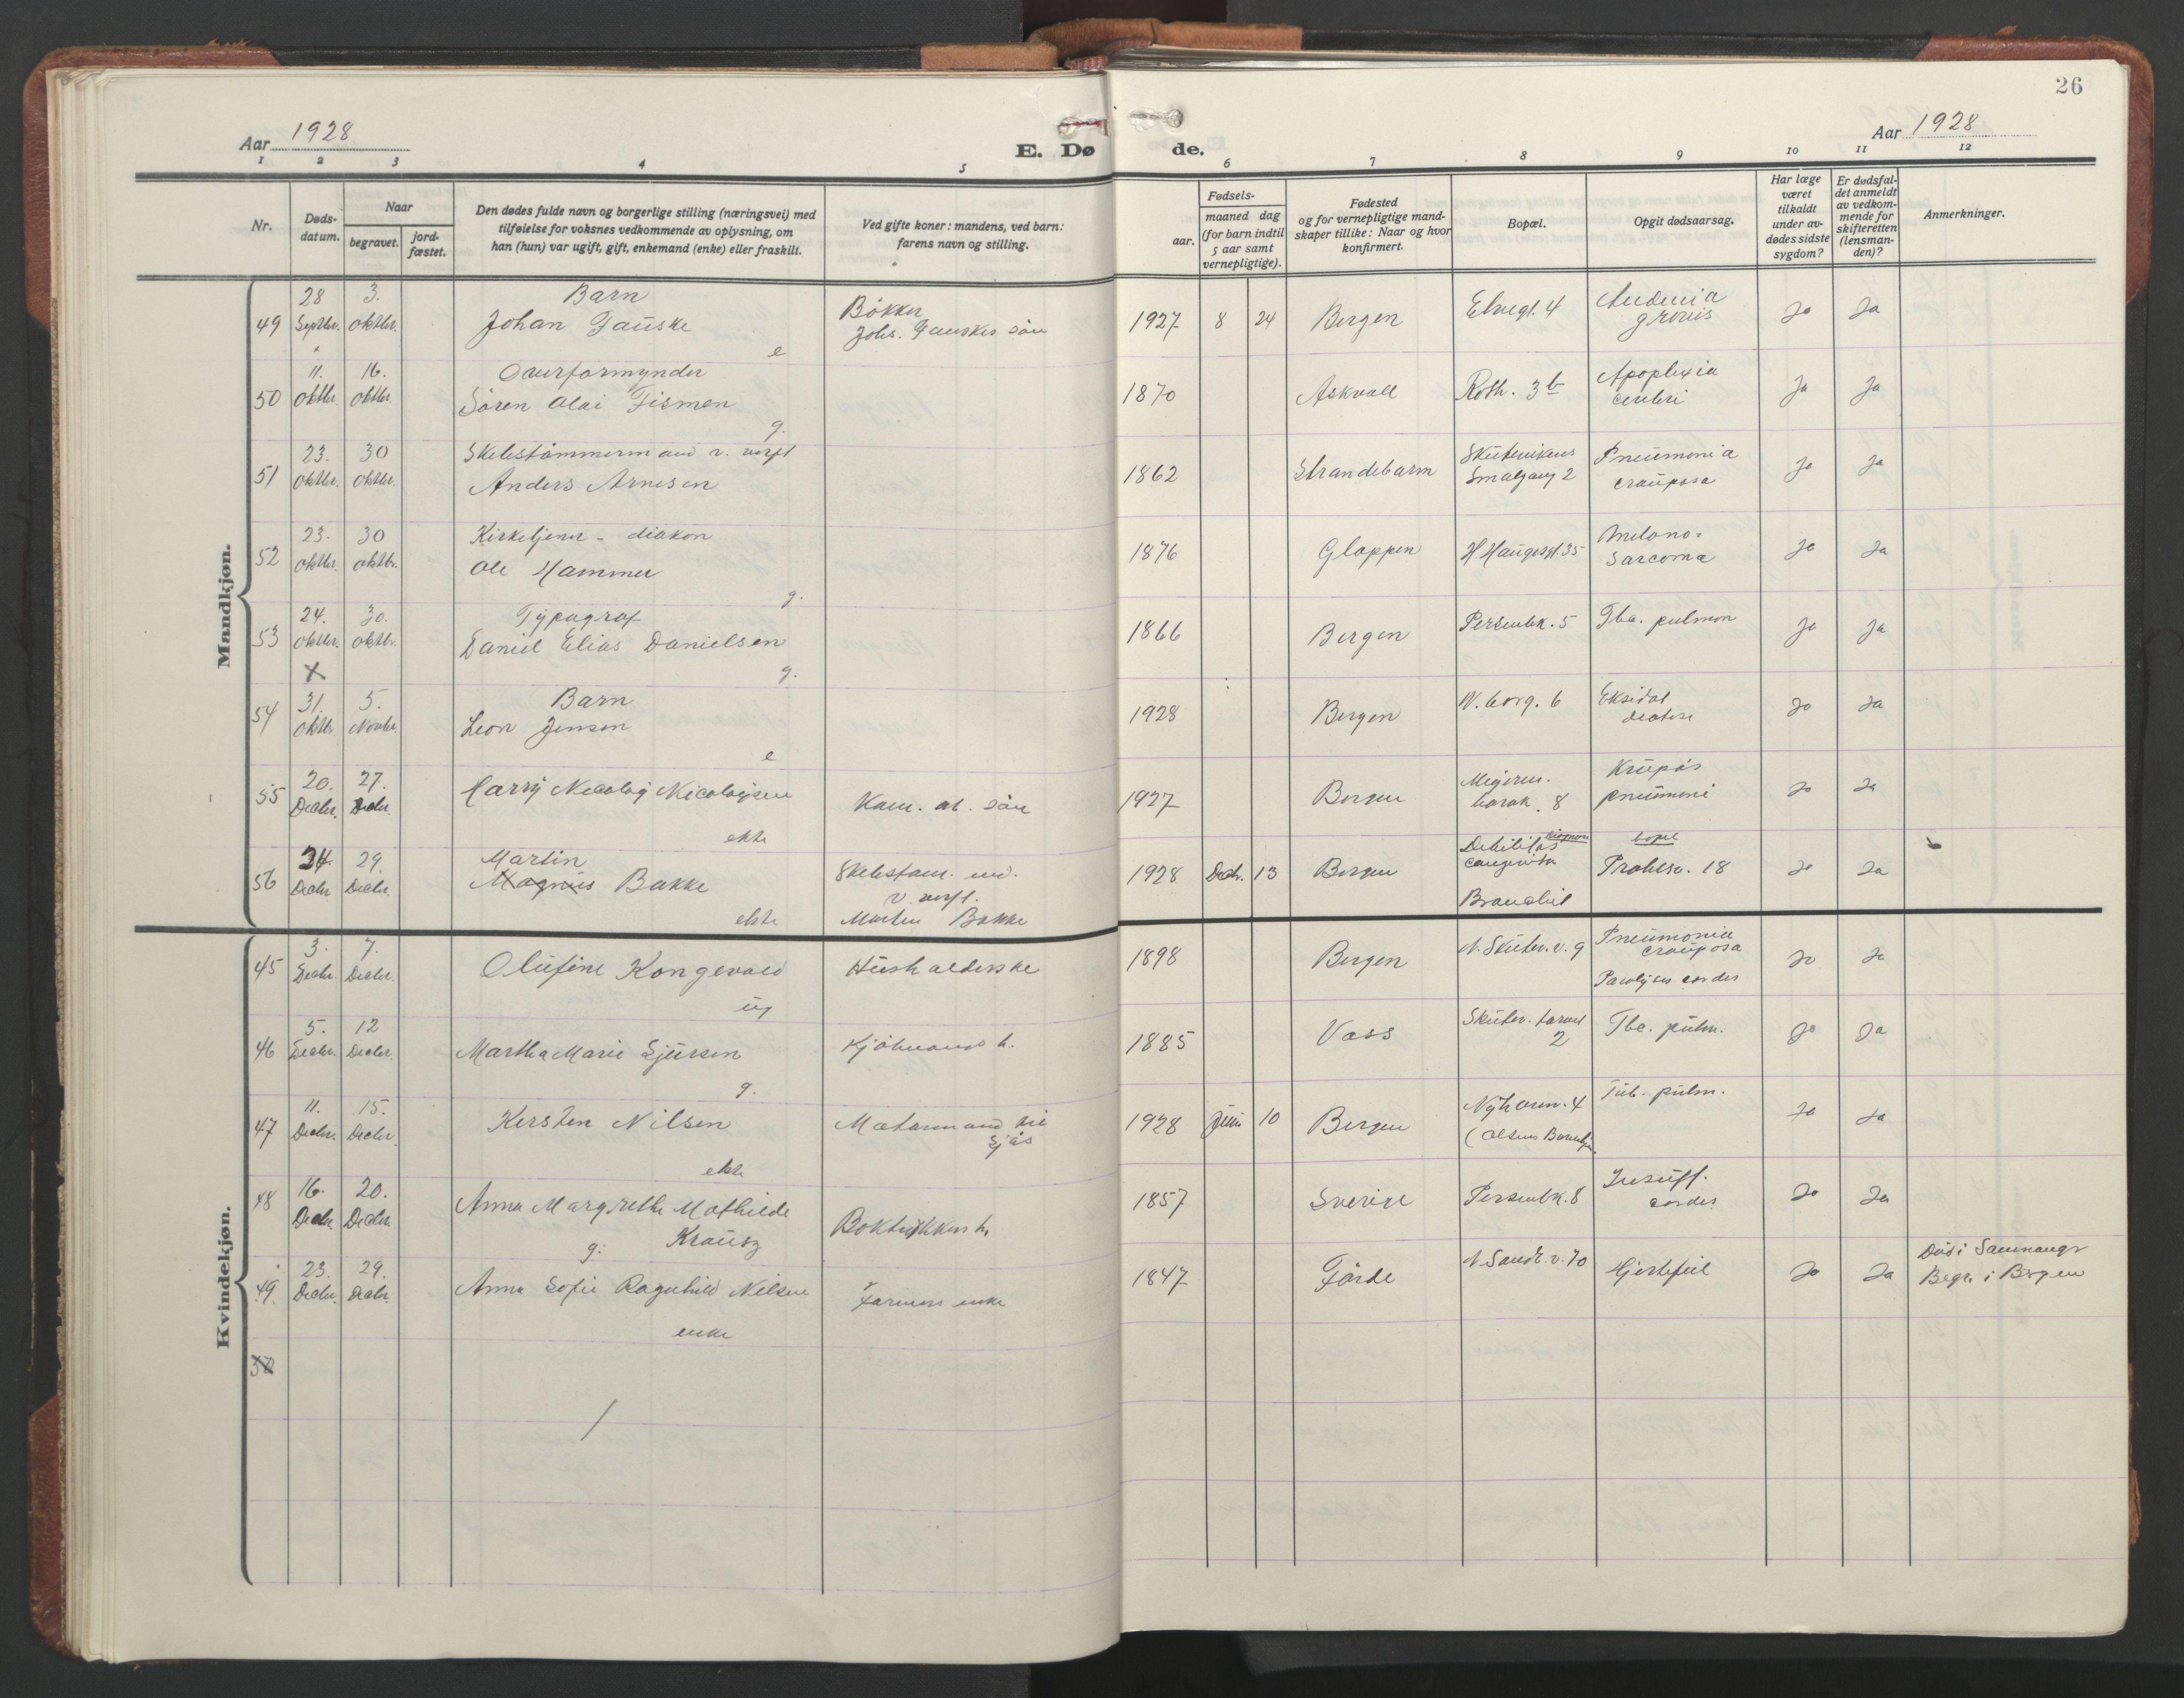 26
Aar 1928
Aar 1928
E. Dø
de.
1 2 3 4 5
6 7 8 9 10 11 12
Nr.
Døds-
datum.
Naar
begravet.
jord-
fæstet.
Den dødes fulde navn og borgerlige stilling (næringsvei) med
tilføielse for voksnes vedkommende av oplysning, om
han (hun) var ugift, gift, enkemand (enke) eller fraskilt.
Ved gifte koner: mandens, ved barn:
farens navn og stilling.
Fødsels-
aar.
maaned dag
(for barn indtil
5 aar samt
vernepligtige).
Fødested
og for vernepligtige mand-
skaper tillike: Naar og hvor
konfirmert.
Bopæl.
Opgit dødsaarsag.
Har læge
været
tilkaldt
under av-
dødes sidste
sygdom?
Er dødsfal-
det anmeldt
av vedkom-
mende for
skifteretten
(lensman-
den)?
Anmerkninger.
Mandkjøn.
49
28 Septbr.
3. oktbr.
Barn
Johan Fauske
e
Bøkker
Johs. Fauskes sön
1927 8 24
Bergen
Elvegt. 4
gravis
Ja Ja
50
11. oktbr.
16. oktbr.
Overformynder
Sören Olai Fismen
g.
1870
Askvoll
Roth. 3b
Apoplexia
cerebri
Ja Ja
51
23. oktbr.
30 oktbr.
Skibstömmermand v. verft
Anders Arnesen
1862
Strandebarm
Skutevikens
Smalgang 2
Pneumonia
crouposa
Ja Ja
52
23. oktbr.
30 oktbr.
Kirketjener - diakon
Ole Hammer
g.
1876
Gloppen
H Haugesgt. 35
Melano-
sarcoma
Ja Ja
53
24. oktbr.
X
30. oktbr.
Typograf
Daniel Elias Danielsen
g.
1866
Bergen
Persenbk. 5
Tbc. pulmon
Ja Ja
54
31. oktbr.
5. Novbr.
Barn
Leon Jensen
e
1928
Bergen
W. borg. 6
Eksudat
diatese
Ja Ja
55
20. Decbr.
27. Decbr.
Harry Nicolay Nicolaysen
ekte
Kom. arb. sön
1927
Bergen
Meyerm.
barak. 8
Krupøs
pneumoni
Ja Ja
56
24 Decbr
29. Decbr.
Martin
Magnus Bakke
ekte
Skibstøm. md.
v. verft.
Martin Bakke
1928 Decbr. 13
Bergen
Debilitas
congenita
bopel
Prahlsv. 18
Ja Ja
Kvindekjøn.
45
3. Decbr.
7. Decbr.
Olufine Kongevold
ug
Husholderske
1898
Bergen
N. Skutev. v. 9
Pneumonia
crouposa
Paralyses cordis
Ja Ja
46
5. Decbr.
12 Decbr.
Martha Marie Sjursen
g.
Kjøbmands h.
1885
Voss
Skutev. torvet
2
Tbc. pulm.
Ja Ja
47
11. Decbr.
15. Decbr.
Kersten Nilsen
ekte
Matermand
sjøs
1928 Juni 10
Bergen
Nyhavn. 4
Tub. pulm.
Ja Ja
48
16. Decbr
20. Decbr
Anna Margrethe Mathilde
Krausz
g.
Boktrykkers h.
1857
Sverige
Persenbk. 8
Insuff.
cordis
Ja Ja
49
23. Decbr.
29. Decbr.
Anna Sofie Ragnhild Nilsen
enke
Farvers enke
1847
Förde
N. Sandv. v. 70
Hjertefeil
Ja Ja
Död i Samnanger
Begr. i Bergen
50